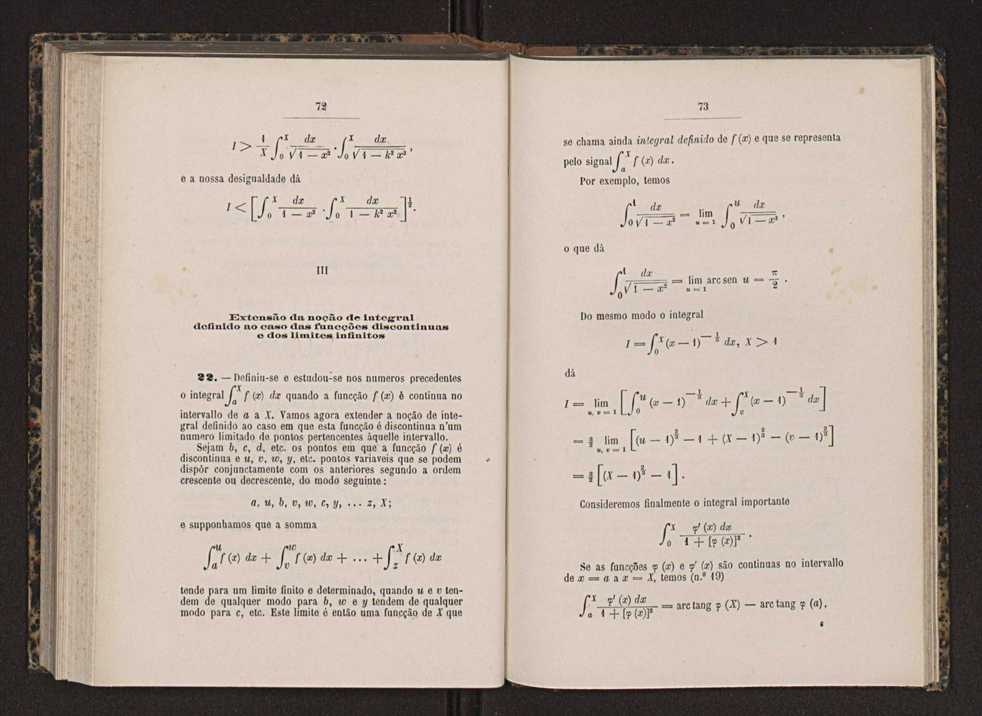 72
I > 1/X ∫₀^X dx/√(1 — x²) . ∫₀^X dx/√(1 — k² x²),
e a nossa desigualdade dá
I < [∫₀^X dx/(1 — x²) . ∫₀^X dx/(1 — k² x²)]^½.
III
Extensão da noção de integral
definido ao caso das funcções discontinuas
e dos limites infinitos
22. — Definiu-se e estudou-se nos numeros precedentes
o integral ∫ₐ^X f (x) dx quando a funcção f (x) é continua no
intervallo de a a X. Vamos agora extender a noção de inte-
gral definido ao caso em que esta funcção é discontinua n'um
numero limitado de pontos pertencentes àquelle intervallo.
Sejam b, c, d, etc. os pontos em que a funcção f (x) é
discontinua e u, v, w, y, etc. pontos variaveis que se podem
dispôr conjunctamente com os anteriores segundo a ordem
crescente ou decrescente, do modo seguinte:
a, u, b, v, w, c, y, ... z, X;
e supponhamos que a somma
∫ₐ^u f (x) dx + ∫ᵥ^w f (x) dx + ... + ∫_z^X f (x) dx
tende para um limite finito e determinado, quando u e v ten-
dem de qualquer modo para b, w e y tendem de qualquer
modo para c, etc. Este limite é então uma funcção de X que
73
se chama ainda integral definido de f (x) e que se representa
pelo signal ∫ₐ^X f (x) dx.
Por exemplo, temos
∫₀^1 dx/√(1 — x²) = lim_{u = 1} ∫₀^u dx/√(1 — x²),
o que dá
∫₀^1 dx/√(1 — x²) = lim_{u = 1} arc sen u = π/2.
Do mesmo modo o integral
I = ∫₀^X (x — 1)^{— 1/3} dx, X > 1
dá
I = lim_{u, v = 1} [∫₀^u (x — 1)^{— 1/3} dx + ∫ᵥ^X (x — 1)^{— 1/3} dx]
= 3/2 lim_{u, v = 1} [(u — 1)^{2/3} — 1 + (X — 1)^{2/3} — (v — 1)^{2/3}]
= 3/2 [(X — 1)^{2/3} — 1].
Consideremos finalmente o integral importante
∫₀^X φ' (x) dx/(1 + [φ (x)]²).
Se as funcções φ (x) e φ' (x) são continuas no intervallo
de x = a a x = X, temos (n.º 19)
∫ₐ^X φ' (x) dx/(1 + [φ (x)]²) = arc tang φ (X) — arc tang φ (a),